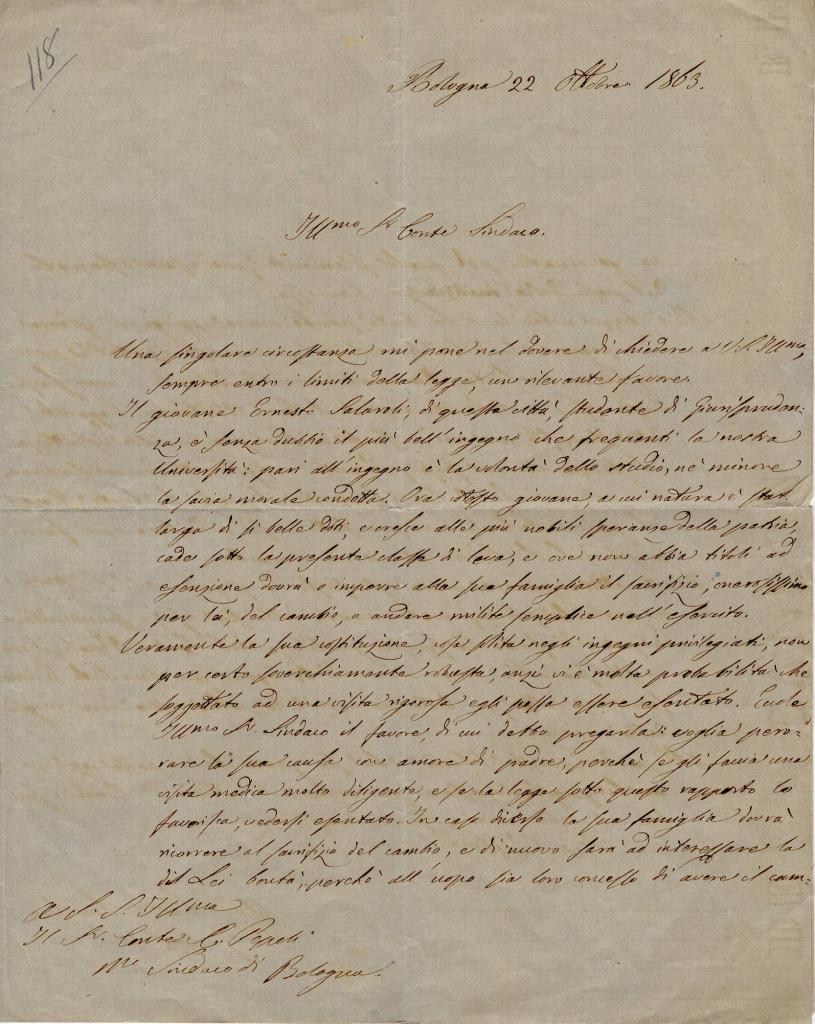 118
Bologna 22 Ottobre 1863.
Illmo Sr Conte Sindaco.
Una singolare circostanza mi pone nel dovere di chiedere a V. S. Illma,
sempre entro i limiti della legge, un rilevante favore.
Il giovane Ernesto Salaroli, di questa città, studente di Giurispruden-
za, è senza dubbio il più bell'ingegno che frequenti la nostra
Università: pari all'ingegno è la volontà dello studio, nè minore
la savia morale condotta. Ora cotesto giovane, a cui natura è stat
larga di sì belle doti, e cresce alle più nobili speranze della patria,
cade sotto la presente classe di leva, e ove non abbia titoli ad
esenzione dovrà o imporre alla sua famiglia il sacrifizio, onerosissimo
per lei, del cambio, o andare milite semplice nell'esercito.
Veramente la sua costituzione, cosa solita negli ingegni privilegiati, non
per certo soverchiamente robusta, anzi vi è molta probabilità che
soggettato ad una visita rigorosa egli possa essere esentato. Eccole
Illmo Sr. Sindaco il favore, di cui debbo pregarla: voglia pero-
rare la sua causa con amore di padre, perchè se gli faccia una
visita medica molto diligente, e se la legge sotto questo rapporto lo
favorisca, vedersi esentato. In caso diverso la sua famiglia dovrà
ricorrere al sacrifizio del cambio, e di nuovo sarà ad interessare la
di Lei bontà, perchè all'uopo sia loro concesso di avere il cam-
A S. S. Illma
Il Sr. Conte C. Pepoli
Sindaco di Bologna.